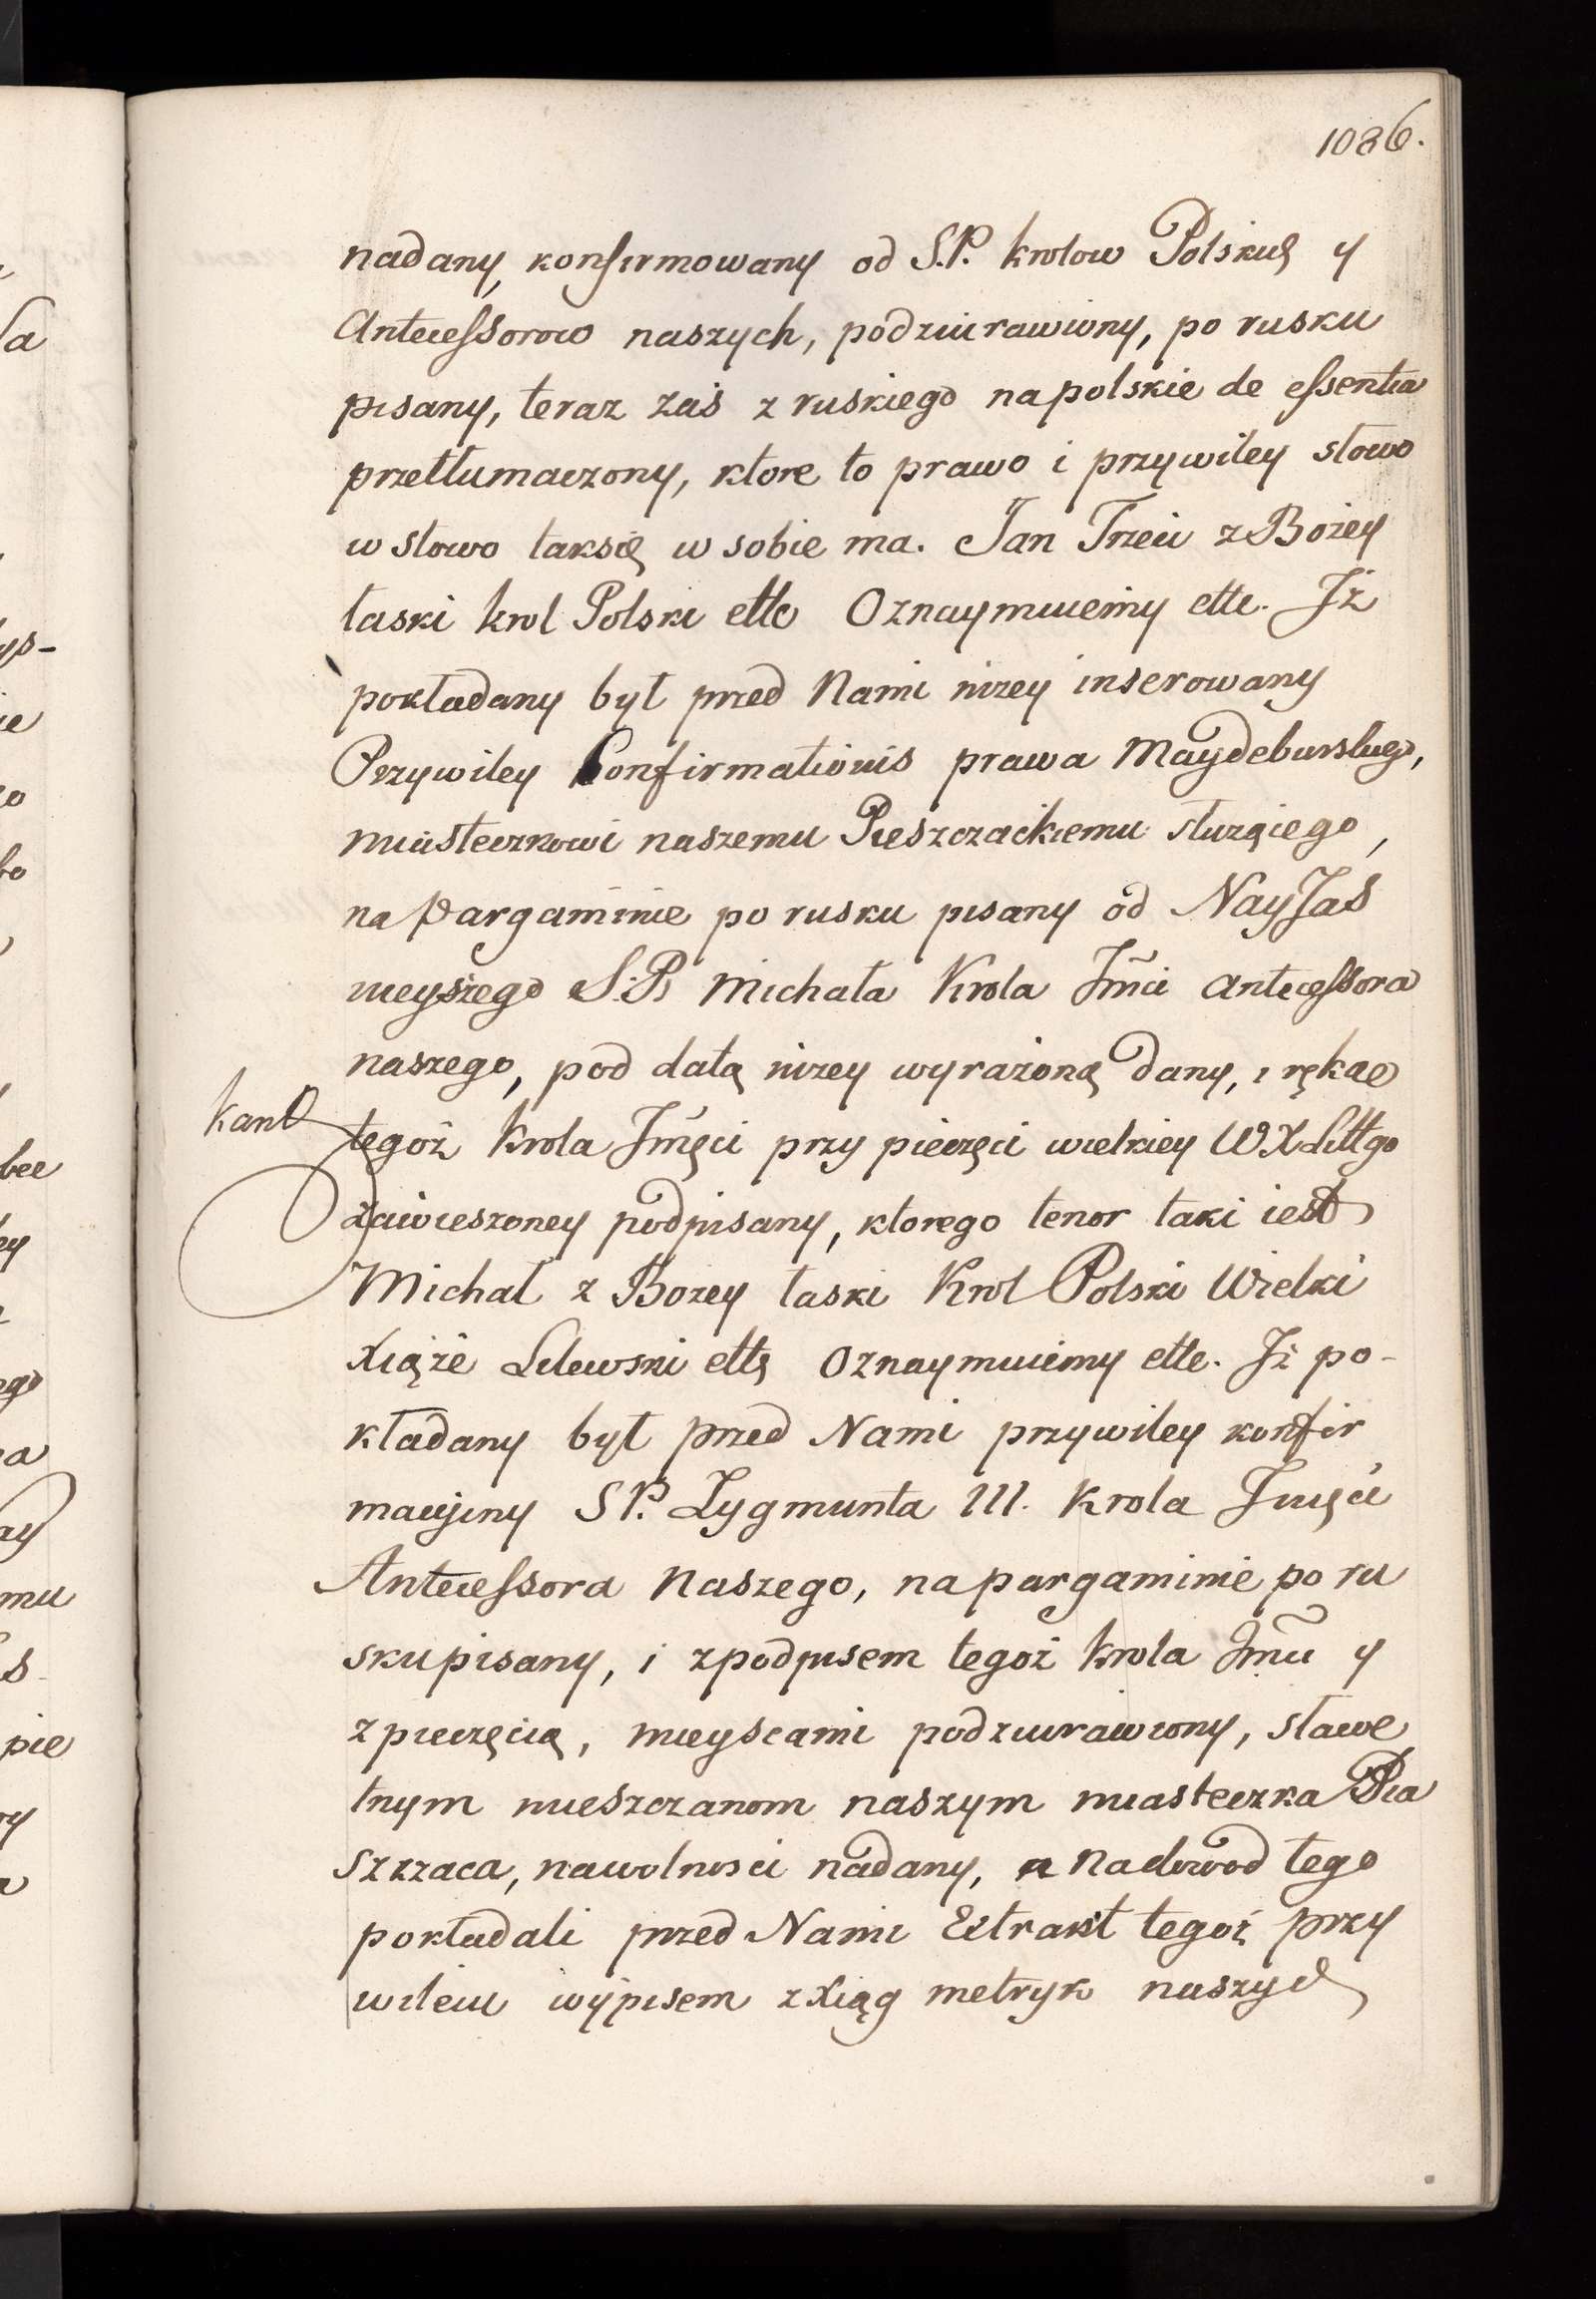 1086.
nadany, konfirmowany od S.P. krolow Polskich y
Antecessorow naszych, podziurawiony, po rusku
pisany, teraz zaś z ruskiego na polskie de essentia
przetłumaczony, ktore to prawo i przywiley słowo
w słowo tak się w sobie ma. Jan Trzeci z Bożey
łaski krol Polski ettc Oznaymuiemy ettc. Jż
pokładany był przed Nami niżey inserowany
Przywiley Confirmationis prawa Maydeburskiego,
miasteczkowi naszemu Pieszczackiemu służącego,
na pargaminie po rusku pisany od NayJaś
nieyszego S.P. Michała Krola Jmci antecessora
naszego, pod datą niżey wyrażoną dany, i ręką
tegoż krola Jmęci przy pieczęci wielkiey W X Littgo
zawieszoney podpisany, ktorego tenor taki iest
Michał z Bożey łaski Krol Polski Wielki
Xiąże Litewski ettc Oznaymuiemy ettc. Jż po-
kładany był przed Nami przywiley konfir
macyjny S P. Zygmunta III. Krola Jmęci
Antecessora Naszego, na pargaminie po ru
sku pisany, i z podpisem tegoż krola Jmci y
z pieczęcią, mieyscami podziurawiony, sławe
tnym mieszczanom naszym miasteczka Pia
szczaca, na wolnosci nadany, a na dowod tego
pokładali przed Nami Extrakt tegoż przy
wileiu wypisem z xiąg metryk naszych